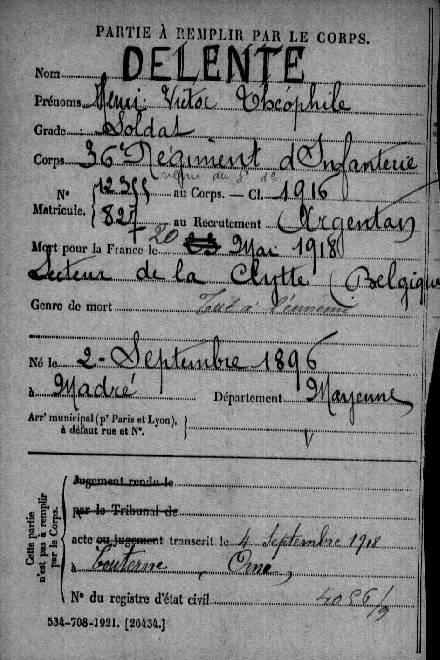 PARTIE À REMPLIR PAR LE CORPS.
Nom DELENTE
Prénoms Henri Victor Théophile
Grade Soldat
Corps 36e Régiment d'Infanterie
N° Matricule. 12355 au Corps. — Cl. 1916
827 au Recrutement Argentan
Mort pour la France le 20 Mai 1918
Secteur de la Clytte (Belgique
Genre de mort Tué à l'ennemi
Né le 2 - Septembre 1896
à Madré Département Mayenne
Arrt municipal (pr Paris et Lyon), à défaut rue et N°.
Cette partie n'est pas à remplir par le Corps.
Jugement rendu le
par le Tribunal de
acte ou jugement transcrit le 4 Septembre 1918
à Couterne, Orne
N° du registre d'état civil 4056/9
534-708-1921. [26434.]